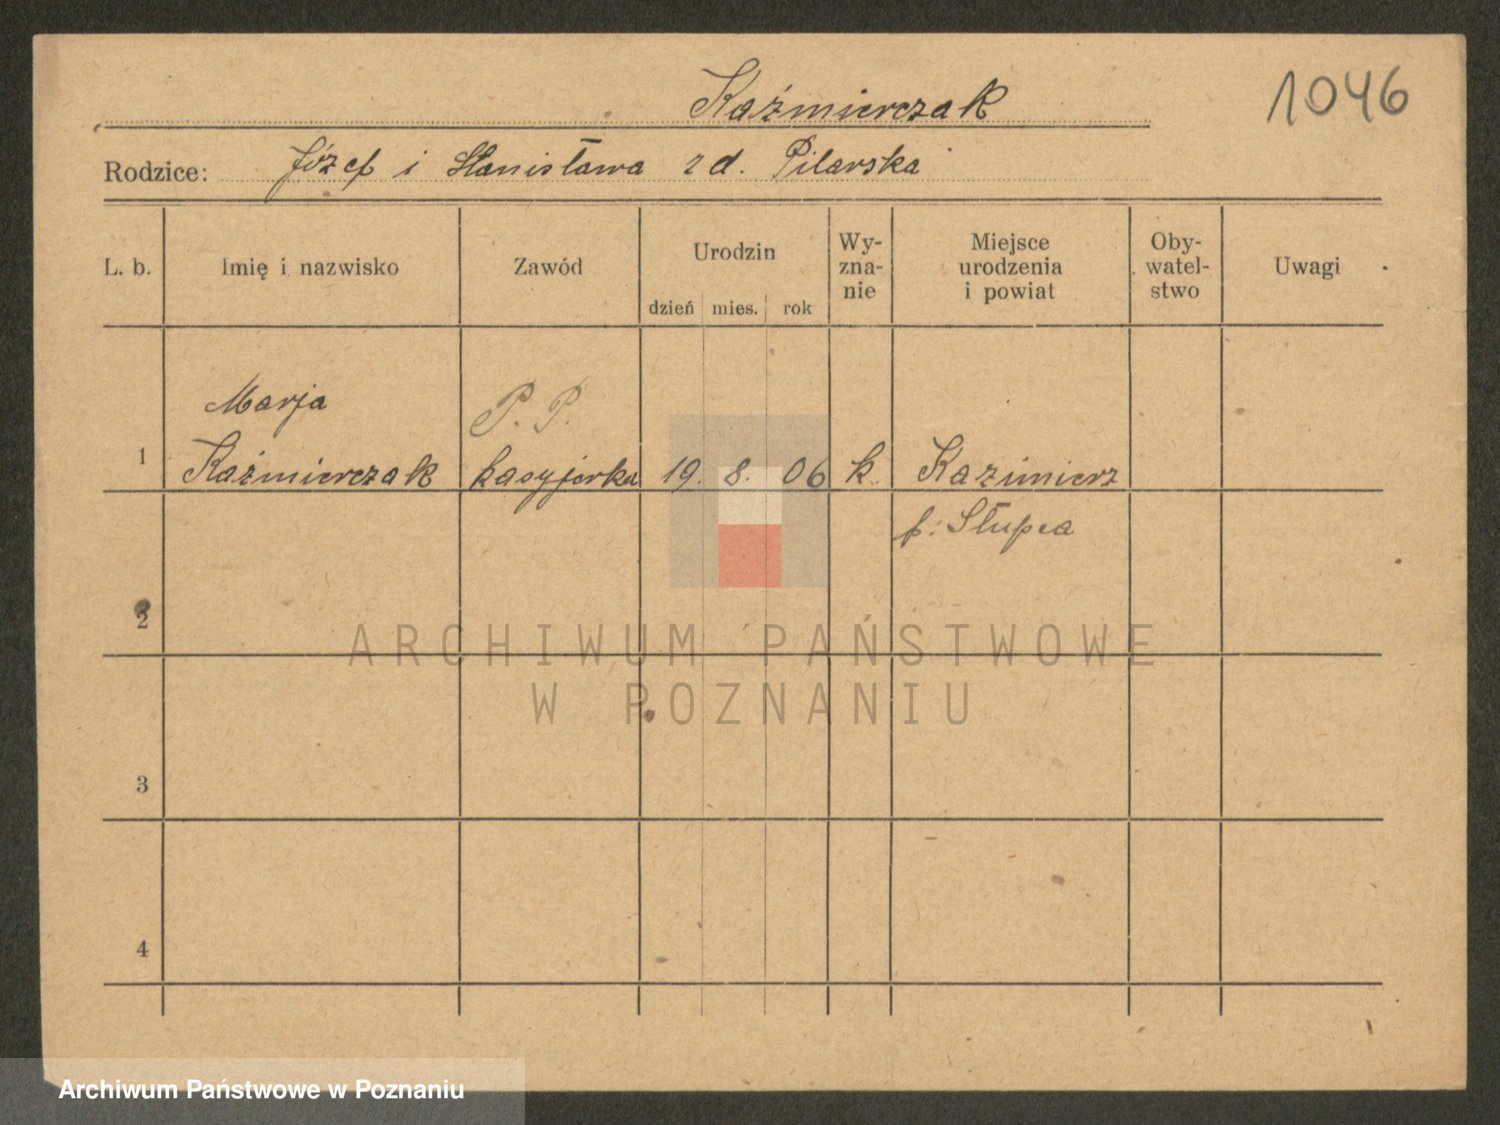 Kaźmierczak
1046
Rodzice: Józef i Stanisława z d. Pilarska
L. b.
Imię i nazwisko
Zawód
Urodzin
dzień mies. rok
Wy-
zna-
nie
Miejsce
urodzenia
i powiat
Oby-
watel-
stwo
Uwagi
Marja
P. P.
1 Kaźmierczak kasyjerka 19. 8. 06 k. Kazimierz
p: Słupca
2
ARCHIWUM PAŃSTWOWE
W POZNANIU
3
4
Archiwum Państwowe w Poznaniu